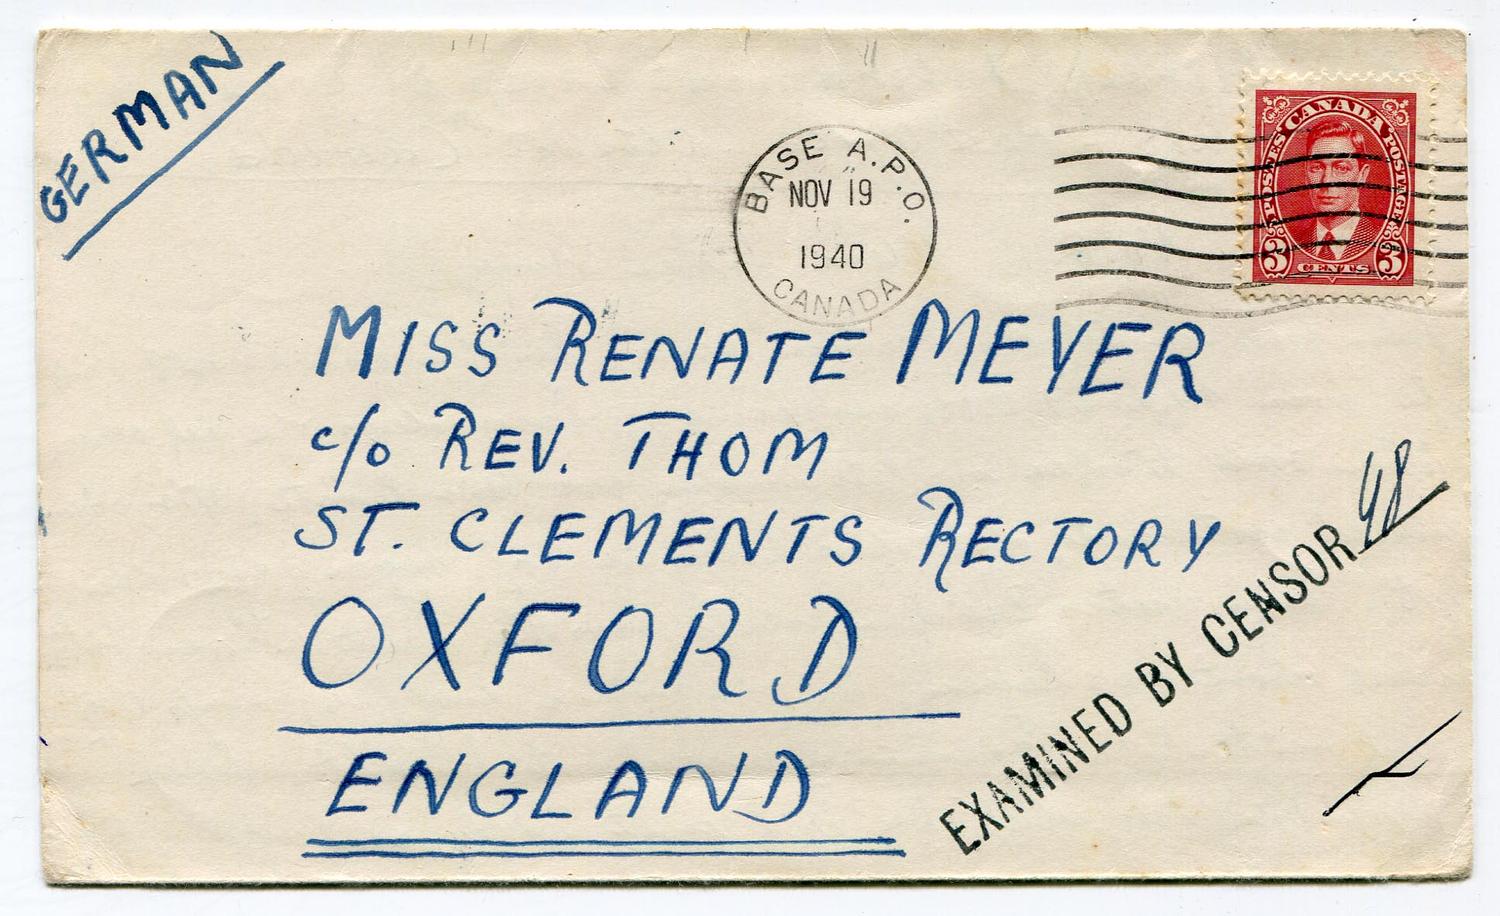 GERMAN
BASE A.P.O.
NOV 19
1940
CANADA
CANADA
POSTES POSTAGE
3 CENTS 3
MISS RENATE MEYER
c/o REV. THOM
ST. CLEMENTS RECTORY
OXFORD
ENGLAND
EXAMINED BY CENSOR 48